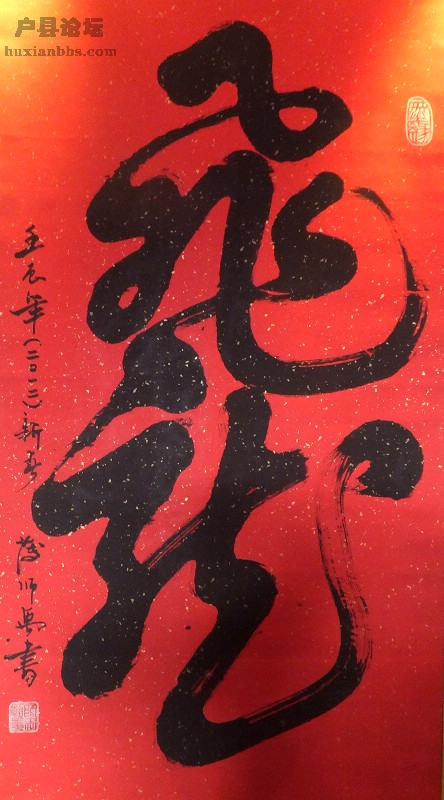 户县论坛
huxianbbs.com
飛龍
壬辰年(二〇一二)新春